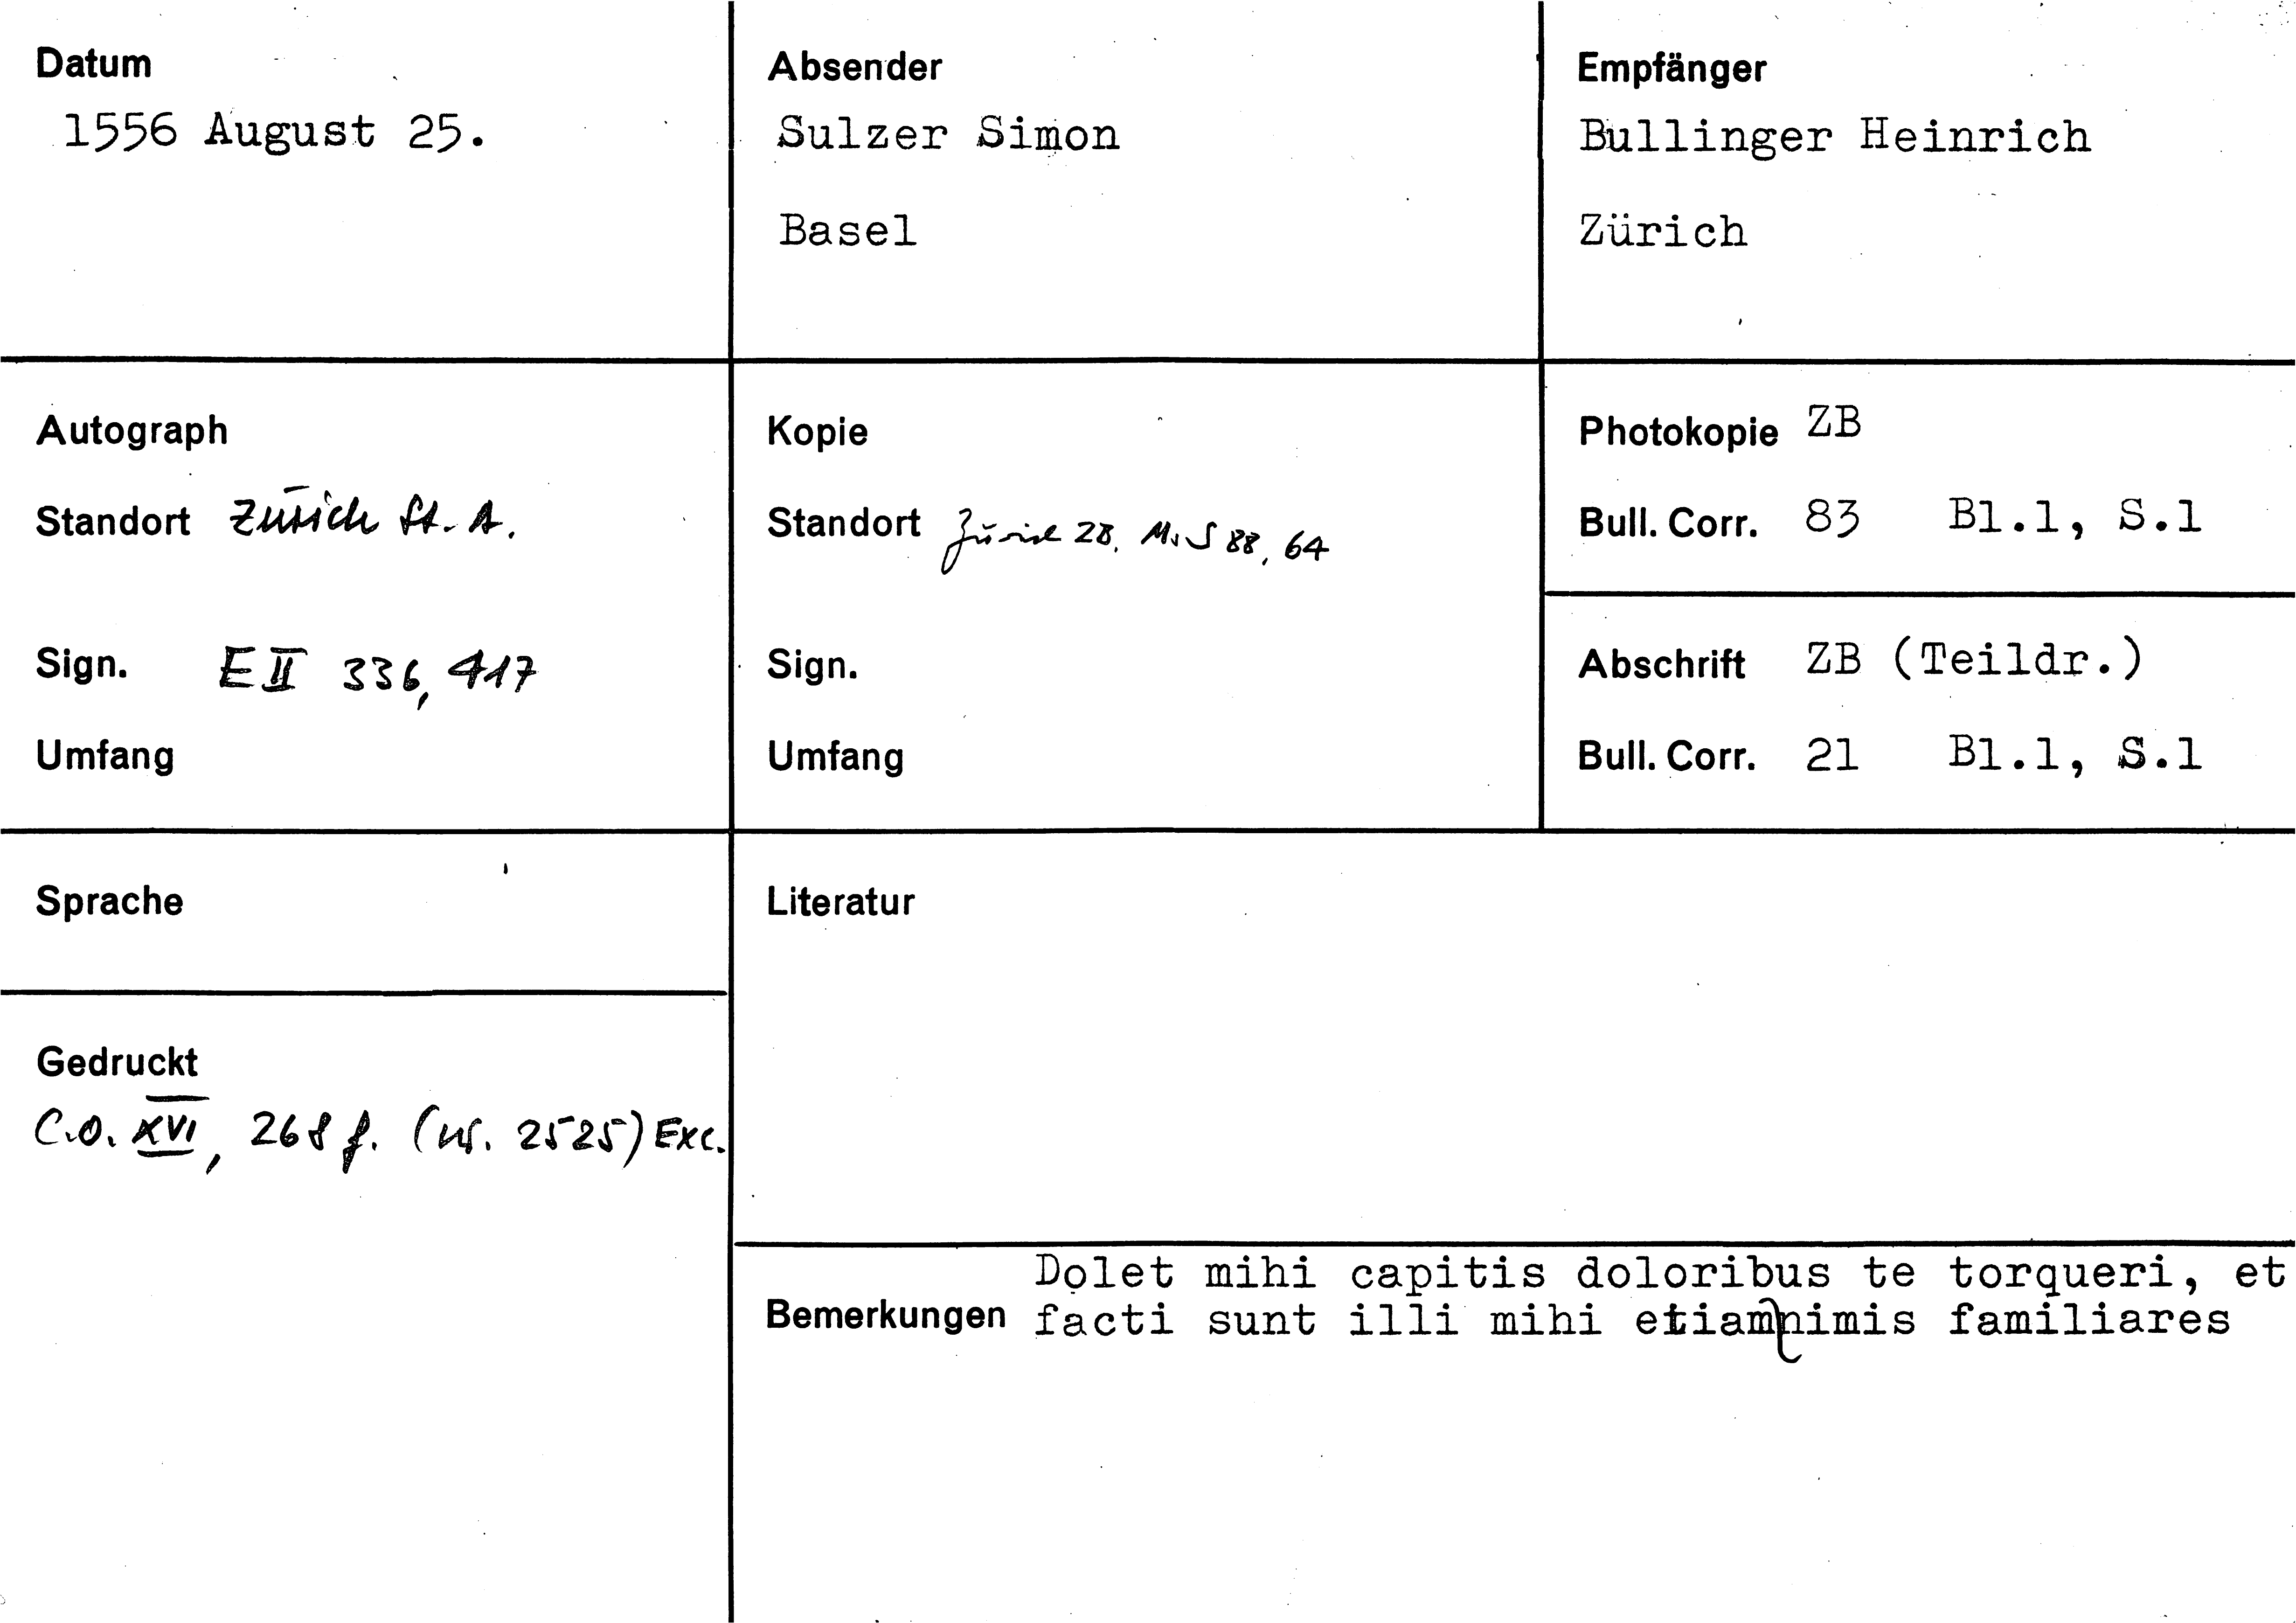 Datum
1556 August 25.
Absender
Sulzer Simon
Basel
Empfänger
Bullinger Heinrich
Zürich
Autograph
Standort Zürich St. A.
Sign. E II 336, 417
Umfang
Kopie
Standort Zürich ZB, Ms S 88, 64
Sign.
Umfang
Photokopie ZB
Bull. Corr. 83 Bl.1, S.1
Abschrift ZB (Teildr.)
Bull. Corr. 21 Bl.1, S.1
Sprache
Gedruckt
C.O. XVI, 268 f. (nr. 2525) Exc.
Literatur
Bemerkungen
Dolet mihi capitis doloribus te torqueri, et
facti sunt illi mihi etiam nimis familiares